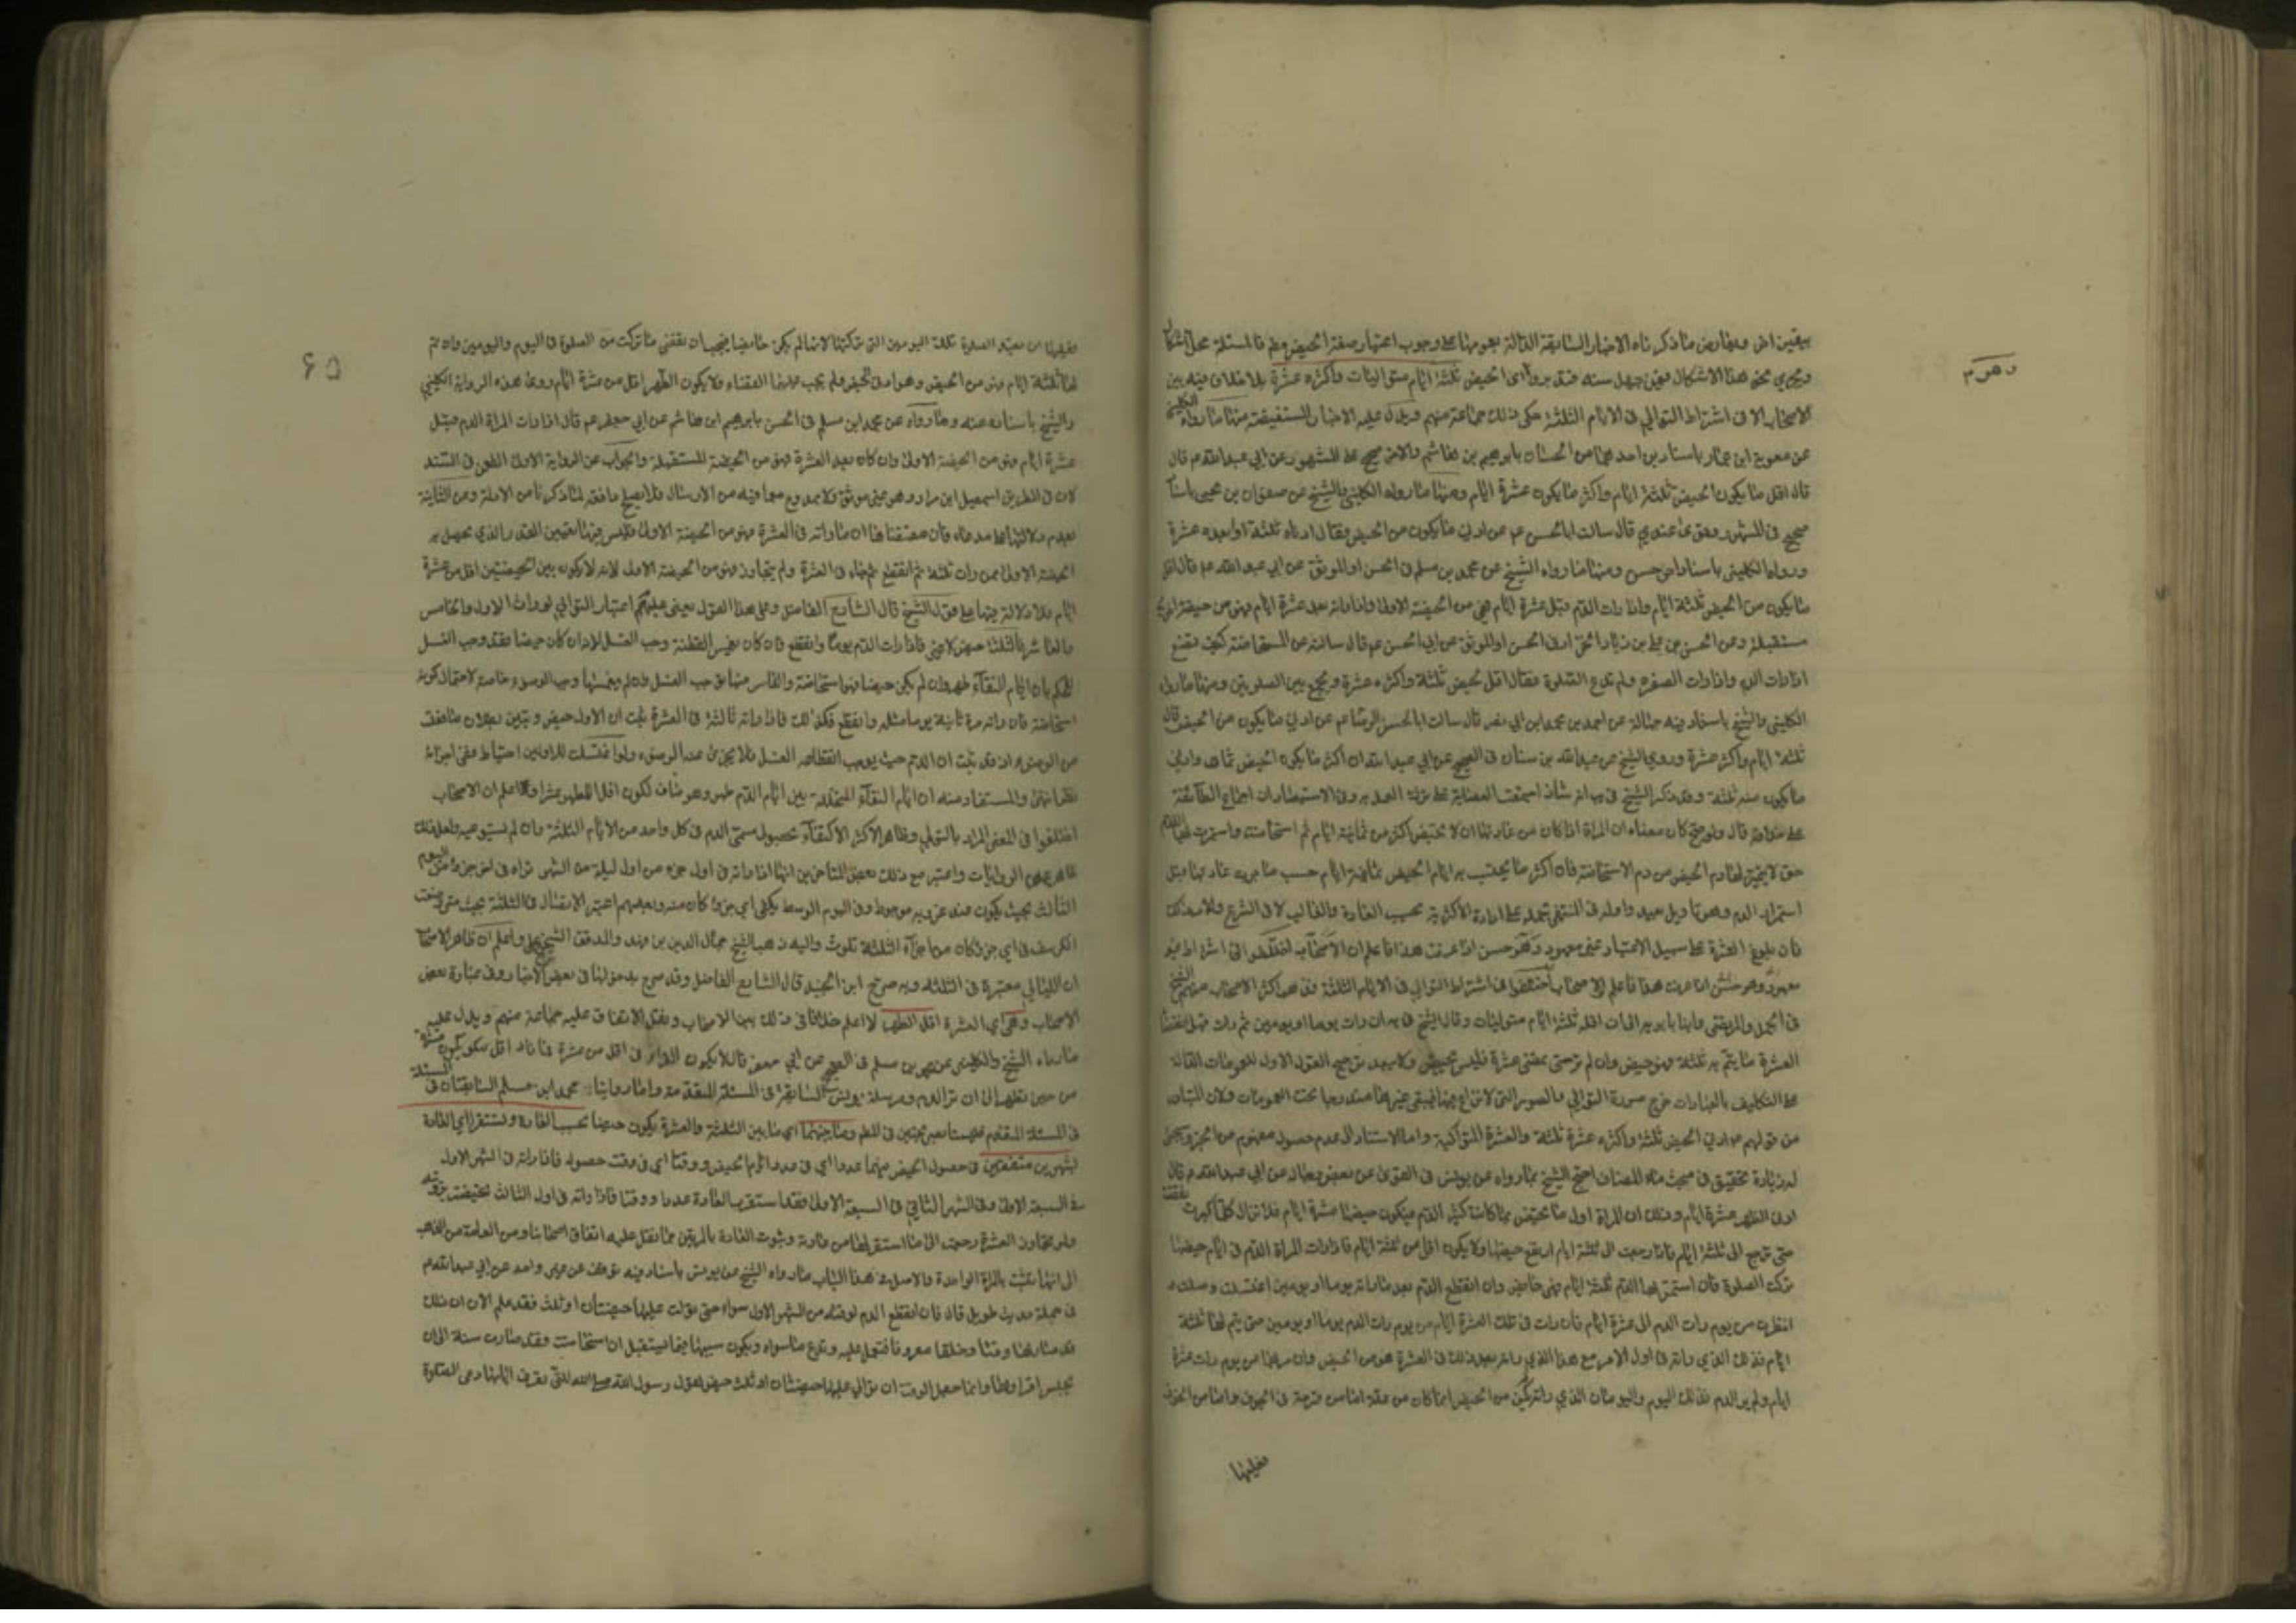 بيقين اخر ويعارض ما ذكرناه الاخبار السابقة الدالة بعمومها على وجوب اعتبار صفة الحيض فالمسئلة محل اشكال
وهو م
الاصحاب الا في اشتراط التوالي في الايام الثلثة حكى ذلك جماعة منهم ويدل عليه الاخبار المستفيضة منها ما رواه الكليني
عن معوية ابن عمار باسناد من الحسان بابرهيم بن هاشم والاخر صحيح على المشهور عن ابي عبد الله ع قال
قال اقل ما يكون الحيض ثلثة ايام واكثر ما يكون عشرة ايام ومنها ما رواه الكليني والشيخ عن صفوان بن يحيى باسناد
صحيح في المشهور عندي قال سالت ابا الحسن ع عن ادنى ما يكون من الحيض فقال ادناه ثلثة وابعده عشرة
ورواه الكليني باسناد اخر حسن ومنها ما رواه الشيخ عن محمد بن مسلم في الحسن او الموثق عن ابي عبد الله ع قال اقل
ما يكون من الحيض ثلثة ايام واذا رات الدم قبل عشرة ايام فهي من الحيضة الاولى واذا راته بعد عشرة ايام فهو من حيضة اخرى
مستقبلة وعن الحسن بن علي بن زياد الخزاز في الحسن او الموثق عن ابي الحسن ع قال سالته عن المستحاضة كيف تصنع
اذا رات الدم واذا رات الصفرة ولم تدع الصلوة فقال اقل الحيض ثلثة واكثره عشرة وتجمع بين الصلوتين ومنها ما رواه
الكليني والشيخ باسناد فيه جهالة عن احمد بن محمد ابن ابي نصر قال سالت ابا الحسن الرضا ع عن ادنى ما يكون من الحيض قال
ثلثة ايام واكثره عشرة وروى الشيخ عن عبد الله بن سنان في الصحيح عن ابي عبد الله ان اكثر ما يكون الحيض ثمان وادنى
ما يكون منه ثلثة وقد ذكر الشيخ في انه شاذ اجمعت العصابة على ترك العمل به وفي الاستبصار ان اجماع الطائفة
على خلافه قال ولو صح كان معناه ان المراة اذا كان من عادتها ان لا تحيض اكثر من ثمانية ايام ثم استحاضت واستمر بها الدم
حتى لا يتميز لها دم الحيض من دم الاستحاضة فان اكثر ما تحتسب به ايام الحيض ثمانية ايام حسب ما جرت عادتها قبل
استمرار الدم وهو تاويل بعيد واوله في المنتهى بحمله على ارادة الاكثرية بحسب العادة والغالب لا في الشرع ولا بعد ذلك
فان بلوغ العشرة على سبيل الاعتياد غير معهود وهو حسن اذا عرفت هذا فاعلم ان الاصحاب اختلفوا في اشتراط
معهود وهو حسن اذا عرفت هذا فاعلم ان الاصحاب اختلفوا في اشتراط التوالي في الايام الثلثة فذهب اكثر الاصحاب منهم الشيخ
في الجمل والمرتضى وابنا بابويه الى ان اقله ثلثة ايام متواليات وقال الشيخ في ية ان رات يوما او يومين ثم رات قبل انقضاء
العشرة ما يتم به ثلثة فهو حيض وان لم تر حتى يمضي عشرة فليس بحيض ولا يبعد ترجيح القول الاول للعمومات الدالة
على التكليف بالعبادات خرج صورة التوالي والصور التي لا نزاع فيها فيبقى غيرها مندرجا تحت العمومات ولان المتبادر
من قولهم ادنى الحيض ثلثة واكثره عشرة ثلثة والعشرة المتواليه واما الاستناد الى عدم حصول مفهوم من الخبر ويجئ
له زيادة تحقيق في مبحث ماء المضاف احتج الشيخ بما رواه عن يونس في القوي عن بعض رجاله عن ابي عبد الله ع قال
ادنى الطهر عشرة ايام وذلك ان المراة اول ما تحيض ربما كانت كثيرة الدم فيكون حيضها عشرة ايام فلا تزال كلما كبرت نقصت
حتى ترجع الى ثلثة ايام فاذا رجعت الى ثلثة ايام ارتفع حيضها ولا يكون اقل من ثلثة ايام فاذا رات المراة الدم في ايام حيضها
تركت الصلوة فان استمر بها الدم ثلثة ايام فهي حائض وان انقطع الدم بعد ما راته يوما او يومين اغتسلت وصلت و
انتظرت من يوم رات الدم الى عشرة ايام فان رات في تلك العشرة ايام من يوم رات الدم يوما او يومين حتى يتم لها ثلثة
ايام فذلك الذي راته في اول الامر مع هذا الذي راته بعد ذلك في العشرة هو من الحيض وان مر بها من يوم رات عشرة
ايام ولم تر الدم فذلك اليوم واليومان الذي راته لم يكن من الحيض انما كان من علة اما من قرحة في الجوف واما من الجوف
فعليها
٦٥
فعليها ان تعيد الصلوة تلك اليومين التي تركتها لانها لم تكن حائضا فيجب ان تقضي ما تركت من الصلوة في اليوم واليومين وان تم
لها ثلثة ايام فهو من الحيض وهو ادنى الحيض ولم يجب عليها القضاء ولا يكون الطهر اقل من عشرة ايام وروى هذه الرواية الكليني
والشيخ باسناده عنه وما رواه عن محمد ابن مسلم في الحسن بابرهيم ابن هاشم عن ابي جعفر ع قال اذا رات المراة الدم قبل
عشرة ايام فهو من الحيضة الاولى وان كان بعد العشرة فهو من الحيضة المستقبلة والجواب عن الرواية الاولى الطعن في السند
لان في الطريق اسمعيل ابن مرار وهو غير موثق ولا ممدوح مع ما فيه من الارسال فلا يصلح دافعة لما ذكرنا من الادلة وعن الثانية
بعدم دلالتها على مدعاه فان مقتضاها ان ما راته في العشرة فهو من الحيضة الاولى وليس فيها تعيين القدر الذي يحصل به
الحيضة الاولى فمن رات ثلثة ثم انقطع ثم جاء في العشرة ولم يتجاوز فهو من الحيضة الاولى لانه لا يكون بين الحيضتين اقل من عشرة
ايام فلا دلالة فيها على قول الشيخ قال الشارح الفاضل وعلى هذا القول يعنى عدم اعتبار التوالي لو رات الاول والخامس
والعاشر فالثلثة حيض لا غير فاذا رات الدم يوما وانقطع فان كان يغمس القطنة وجب الغسل لانه ان كان حيضا فقد وجب الغسل
للحكم بان ايام النقاء طهر وان لم يكن حيضا فهو استحاضة والغامس منها يوجب الغسل وان لم يغمسها وجب الوضوء خاصة لاحتمال كونه
استحاضة فان راته مرة ثانية يوما مثلا وانقطع فكذلك فاذا راته ثالثة في العشرة ثبت ان الاول حيض وتبين بطلان ما فعلت
من الوضوء اذ قد ثبت ان الدم حيث يوجب انقطاعه الغسل فلا يجزئ عنه الوضوء ولو اغتسلت للاولين احتياطا ففي اجزائه
نظر انتهى والمستفاد منه ان ايام النقاء المتخللة بين ايام الدم طهر وهو مناف لكون اقل الطهر عشرا واعلم ان الاصحاب
اختلفوا في المعنى المراد بالتوالي وظاهر الاكثر الاكتفاء بحصول مسمى الدم في كل واحد من الايام الثلثة وان لم يستوعبه ولعل ذلك
ظاهر الروايات واعتبر مع ذلك بعض المتاخرين انها اذا راته في اول جزء من اول ليلة من الشهر تراه في اخر جزء من اليوم
الثالث بحيث يكون عند غروبه موجودا وفي اليوم الوسط يكفي اي جزء كان منه وبعضهم اعتبر الاتصال في الثلثة بحيث متى وضعت
الكرسف في اي جزء كان من اجزاء الثلثة تلوث واليه ذهب الشيخ جمال الدين بن فهد والمدقق الشيخ علي واعلم ان ظاهر الاصحاب
ان الليالي معتبرة في الثلثة وبه صرح ابن الجنيد قال الشارح الفاضل وقد صرح بدخولها في بعض الاخبار وفي عبارة بعض
الاصحاب وهي اي العشرة اقل الطهر لا اعلم خلافا في ذلك بين الاصحاب ونقل الاتفاق عليه جماعة منهم ويدل عليه
ما رواه الشيخ والكليني عن محمد بن مسلم في الصحيح عن ابي جعفر قال لا يكون القرء في اقل من عشرة فما زاد اقل ما يكون عشرة
من حين تطهر الى ان ترى الدم ومرسلة يونس السابقة في المسئلة المتقدمة واما روايتا محمد ابن مسلم السابقتان في
في المسئلة المتقدمة فليستا بصريحتين في المطلوب وما بينهما اي ما بين الثلثة والعشرة يكون حيضا بحسب العادة وتستقر اي العادة
بشهرين متفقين في حصول الحيض فيهما عددا اي في عدد ايام الحيض ووقتا اي في وقت حصوله فاذا راته في الشهر الاول
في السبعة الاولى وفي الشهر الثاني في السبعة الاولى فقد استقرت العادة عددا ووقتا فاذا راته في اول الثالث تحيضت برؤيته
ولو تجاوز العشرة رجعت الى ما استقر لها من عادة وثبوت العادة بالمرتين مما نقل عليه اتفاق اصحابنا ومن العامة من ذهب
الى انها تثبت بالمرة الواحدة والاصل في هذا الباب ما رواه الشيخ عن يونس باسناد فيه عن غير واحد عن ابي عبد الله ع
في جملة حديث طويل قال فان انقطع الدم لوقته من الشهر الاول سواء حتى توالت عليها حيضتان او ثلث فقد علم الان ان ذلك
قد صار لها وقتا وخلقا معروفا فتعمل عليه وتدع ما سواه ويكون سنتها فيما يستقبل ان استحاضت وقد صارت سنة الى ان
تجلس اقراءها وانما جعل الوقت ان توالى عليها حيضتان او ثلث حيض لقول رسول الله صلى الله للتي تعرف ايامها دعي الصلوة